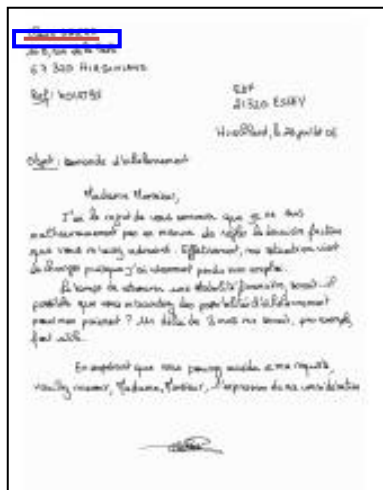 67320 HIRSCHLAND
Réf:
EDF
21320 ESSEY
Hirschland, le 26 juillet 06
Objet : Demande d'échelonnement
Madame, Monsieur,
J'ai le regret de vous annoncer que je ne suis
malheureusement pas en mesure de régler la dernière facture
que vous m'avez adressée. Effectivement, ma situation vient
de changer puisque j'ai récemment perdu mon emploi.
Le temps de retrouver une stabilité financière, serait-il
possible que vous m'accordiez des possibilités d'échelonnement
pour mon paiement ? Un délai de 3 mois me serait, par exemple,
fort utile.
En espérant que vous pourrez accéder à ma requête,
veuillez recevoir, Madame, Monsieur, l'expression de ma considération